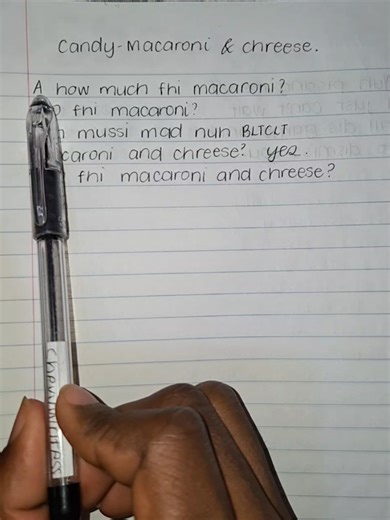 Candy-Macaroni & chreese.
A how much fhi macaroni?
fhi macaroni?
mussi mad nuh BLTCLT
caroni and chreese? yes.
fhi macaroni and chreese?